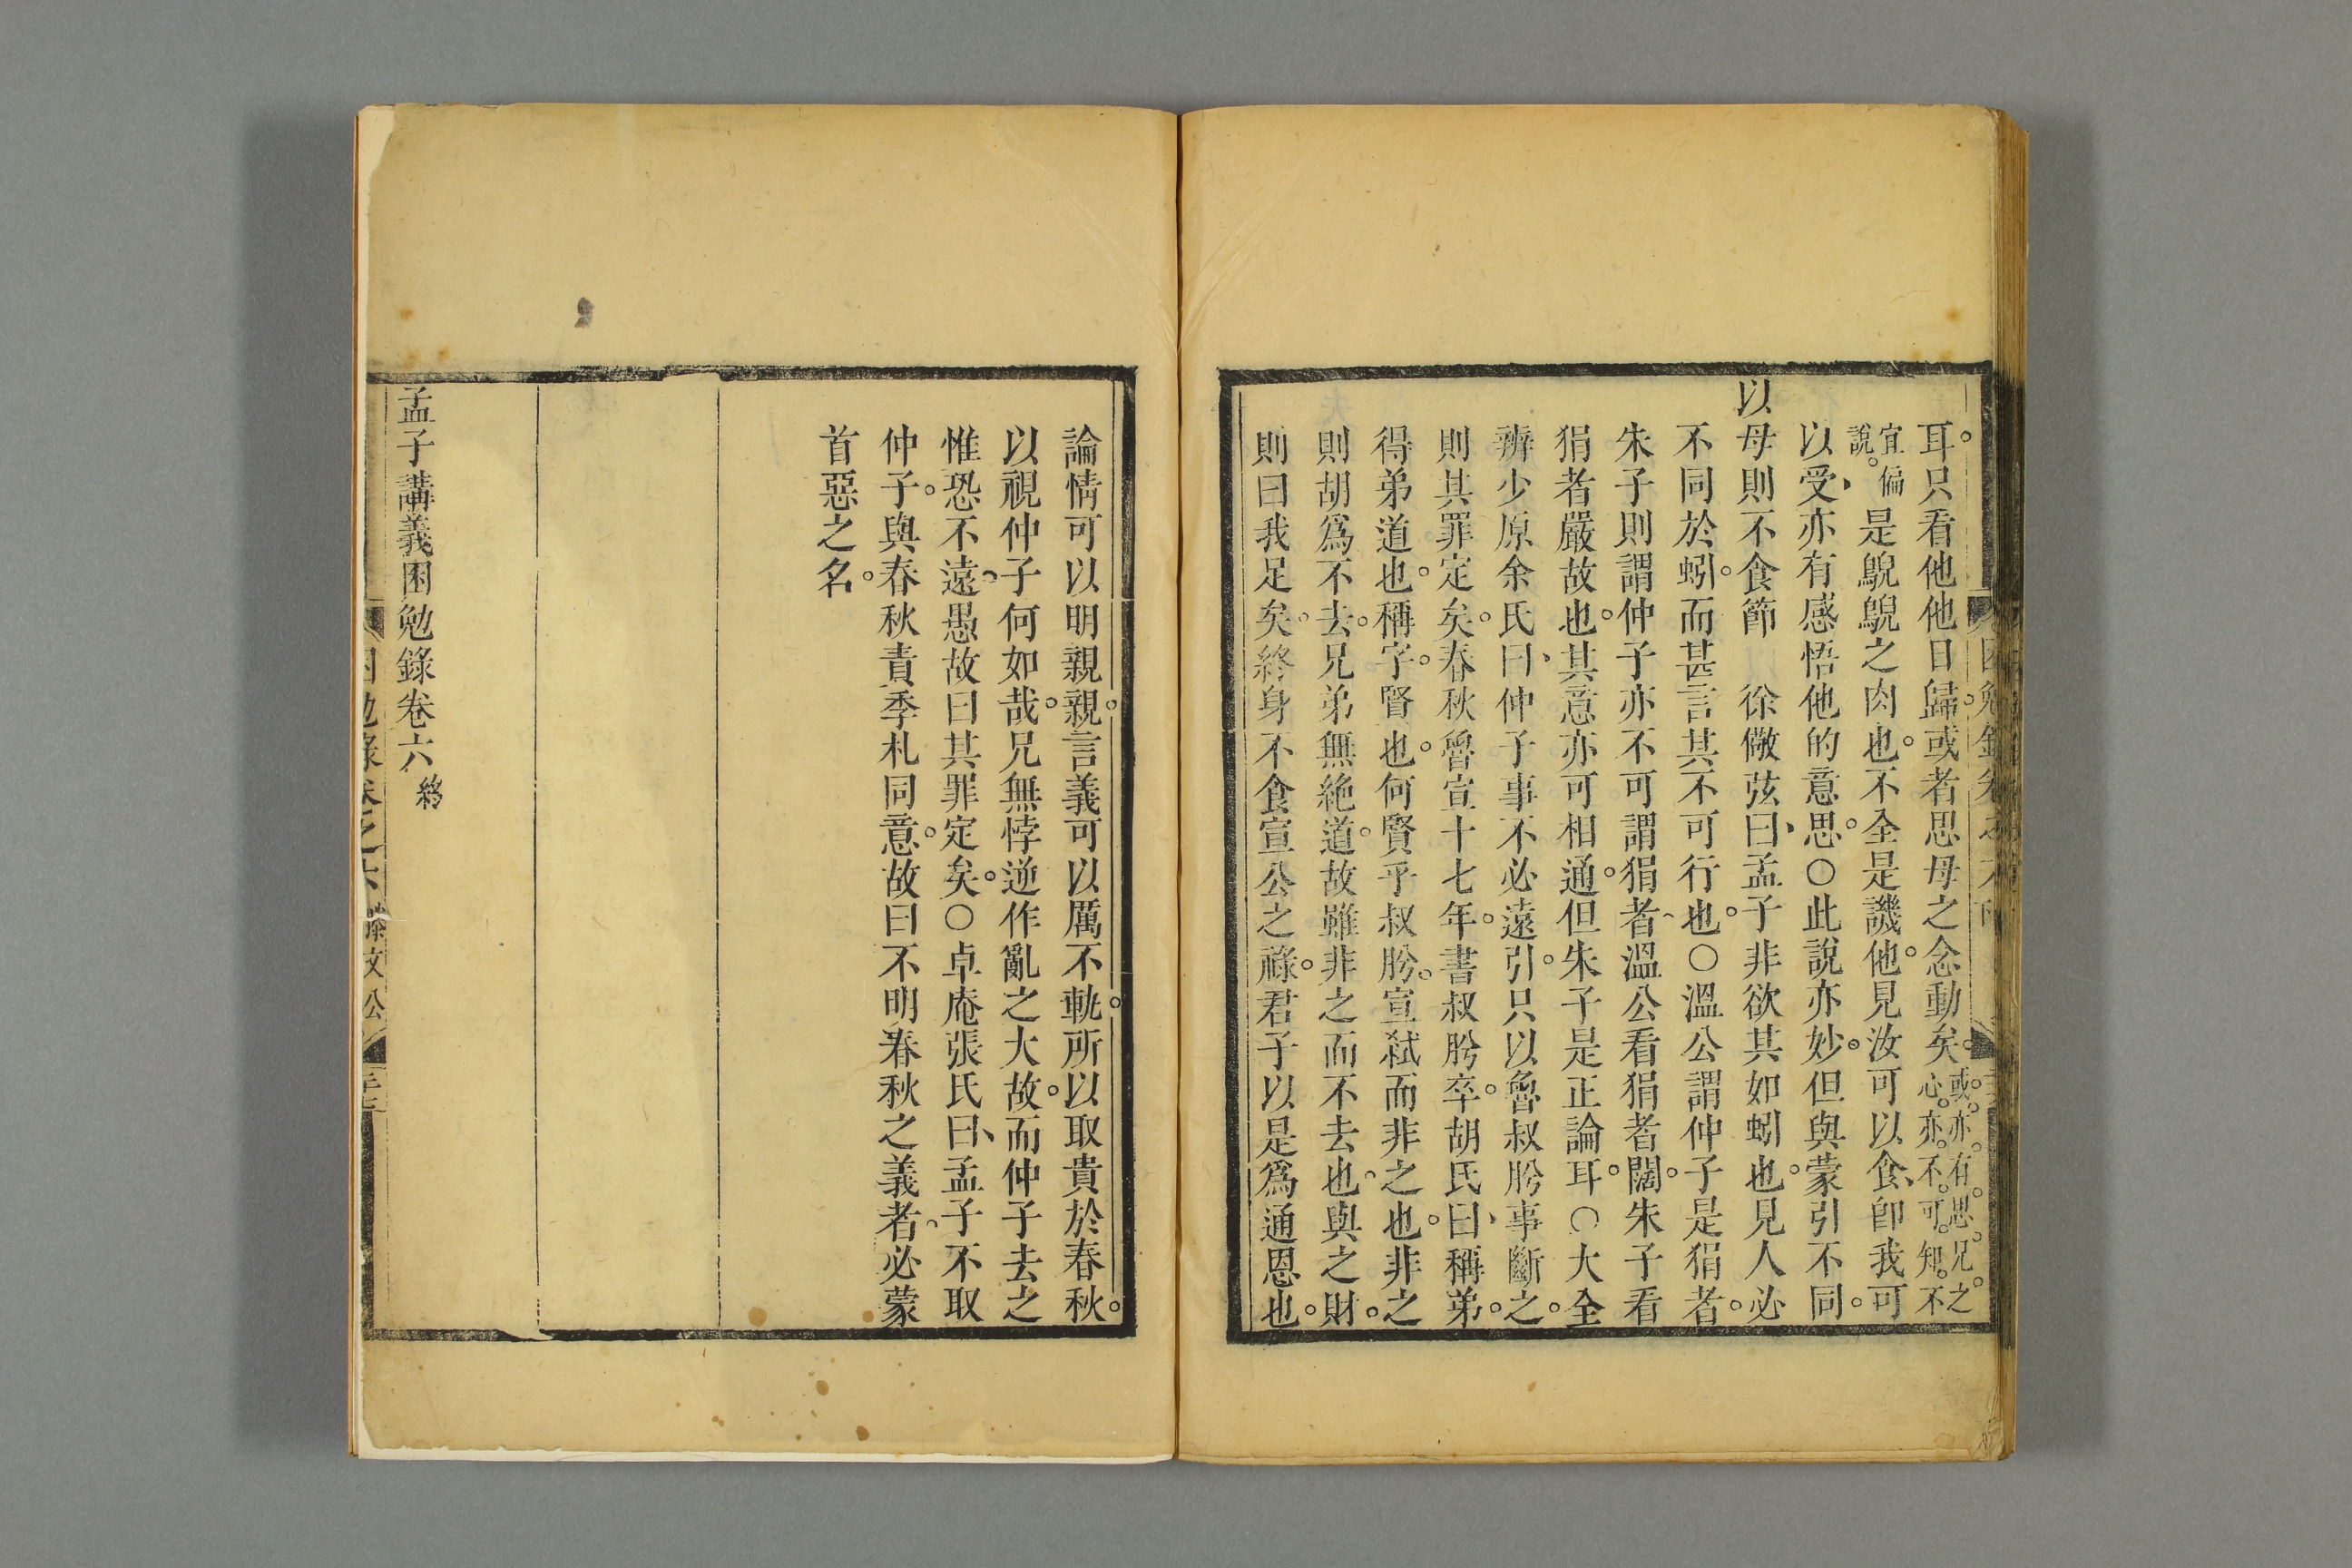 耳。只看他他日歸。或者思母之念動矣。或。亦。有。思。兄。之心。亦。不。可。知。不
宜偏說。是鶃鶃之肉也。不全是譏他。見汝可以食、卽我可
以受、亦有感悟他的意思。○此說亦妙。但與蒙引不同。
以母則不食節 徐儆弦曰、孟子非欲其如蚓也。見人必
不同於蚓。而甚言其不可行也。○溫公謂仲子是狷者。
朱子則謂仲子亦不可謂狷者、溫公看狷者闊。朱子看
狷者嚴故也。其意亦可相通。但朱子是正論耳。○大全
辨少原余氏曰、仲子事不必遠引。只以魯叔肸事斷之。
則其罪定矣。春秋魯宣十七年。書叔肸卒。胡氏曰、稱弟。
得弟道也。稱字。賢也。何賢乎叔肸。宣弑而非之也。非之
則胡爲不去。兄弟無絕道。故雖非之而不去也、與之財。
則曰我足矣。終身不食宣公之祿。君子以是爲通恩也。
論情可以明親親。言義可以厲不軌。所以取貴於春秋。
以視仲子何如哉。兄無悖逆作亂之大故。而仲子去之
惟恐不遠、愚故曰其罪定矣。○卓庵張氏曰、孟子不取
仲子。與春秋責季札同意。故曰不明春秋之義者、必蒙
首惡之名。
孟子講義困勉錄卷六終
困勉錄卷之六 滕文公 三十三